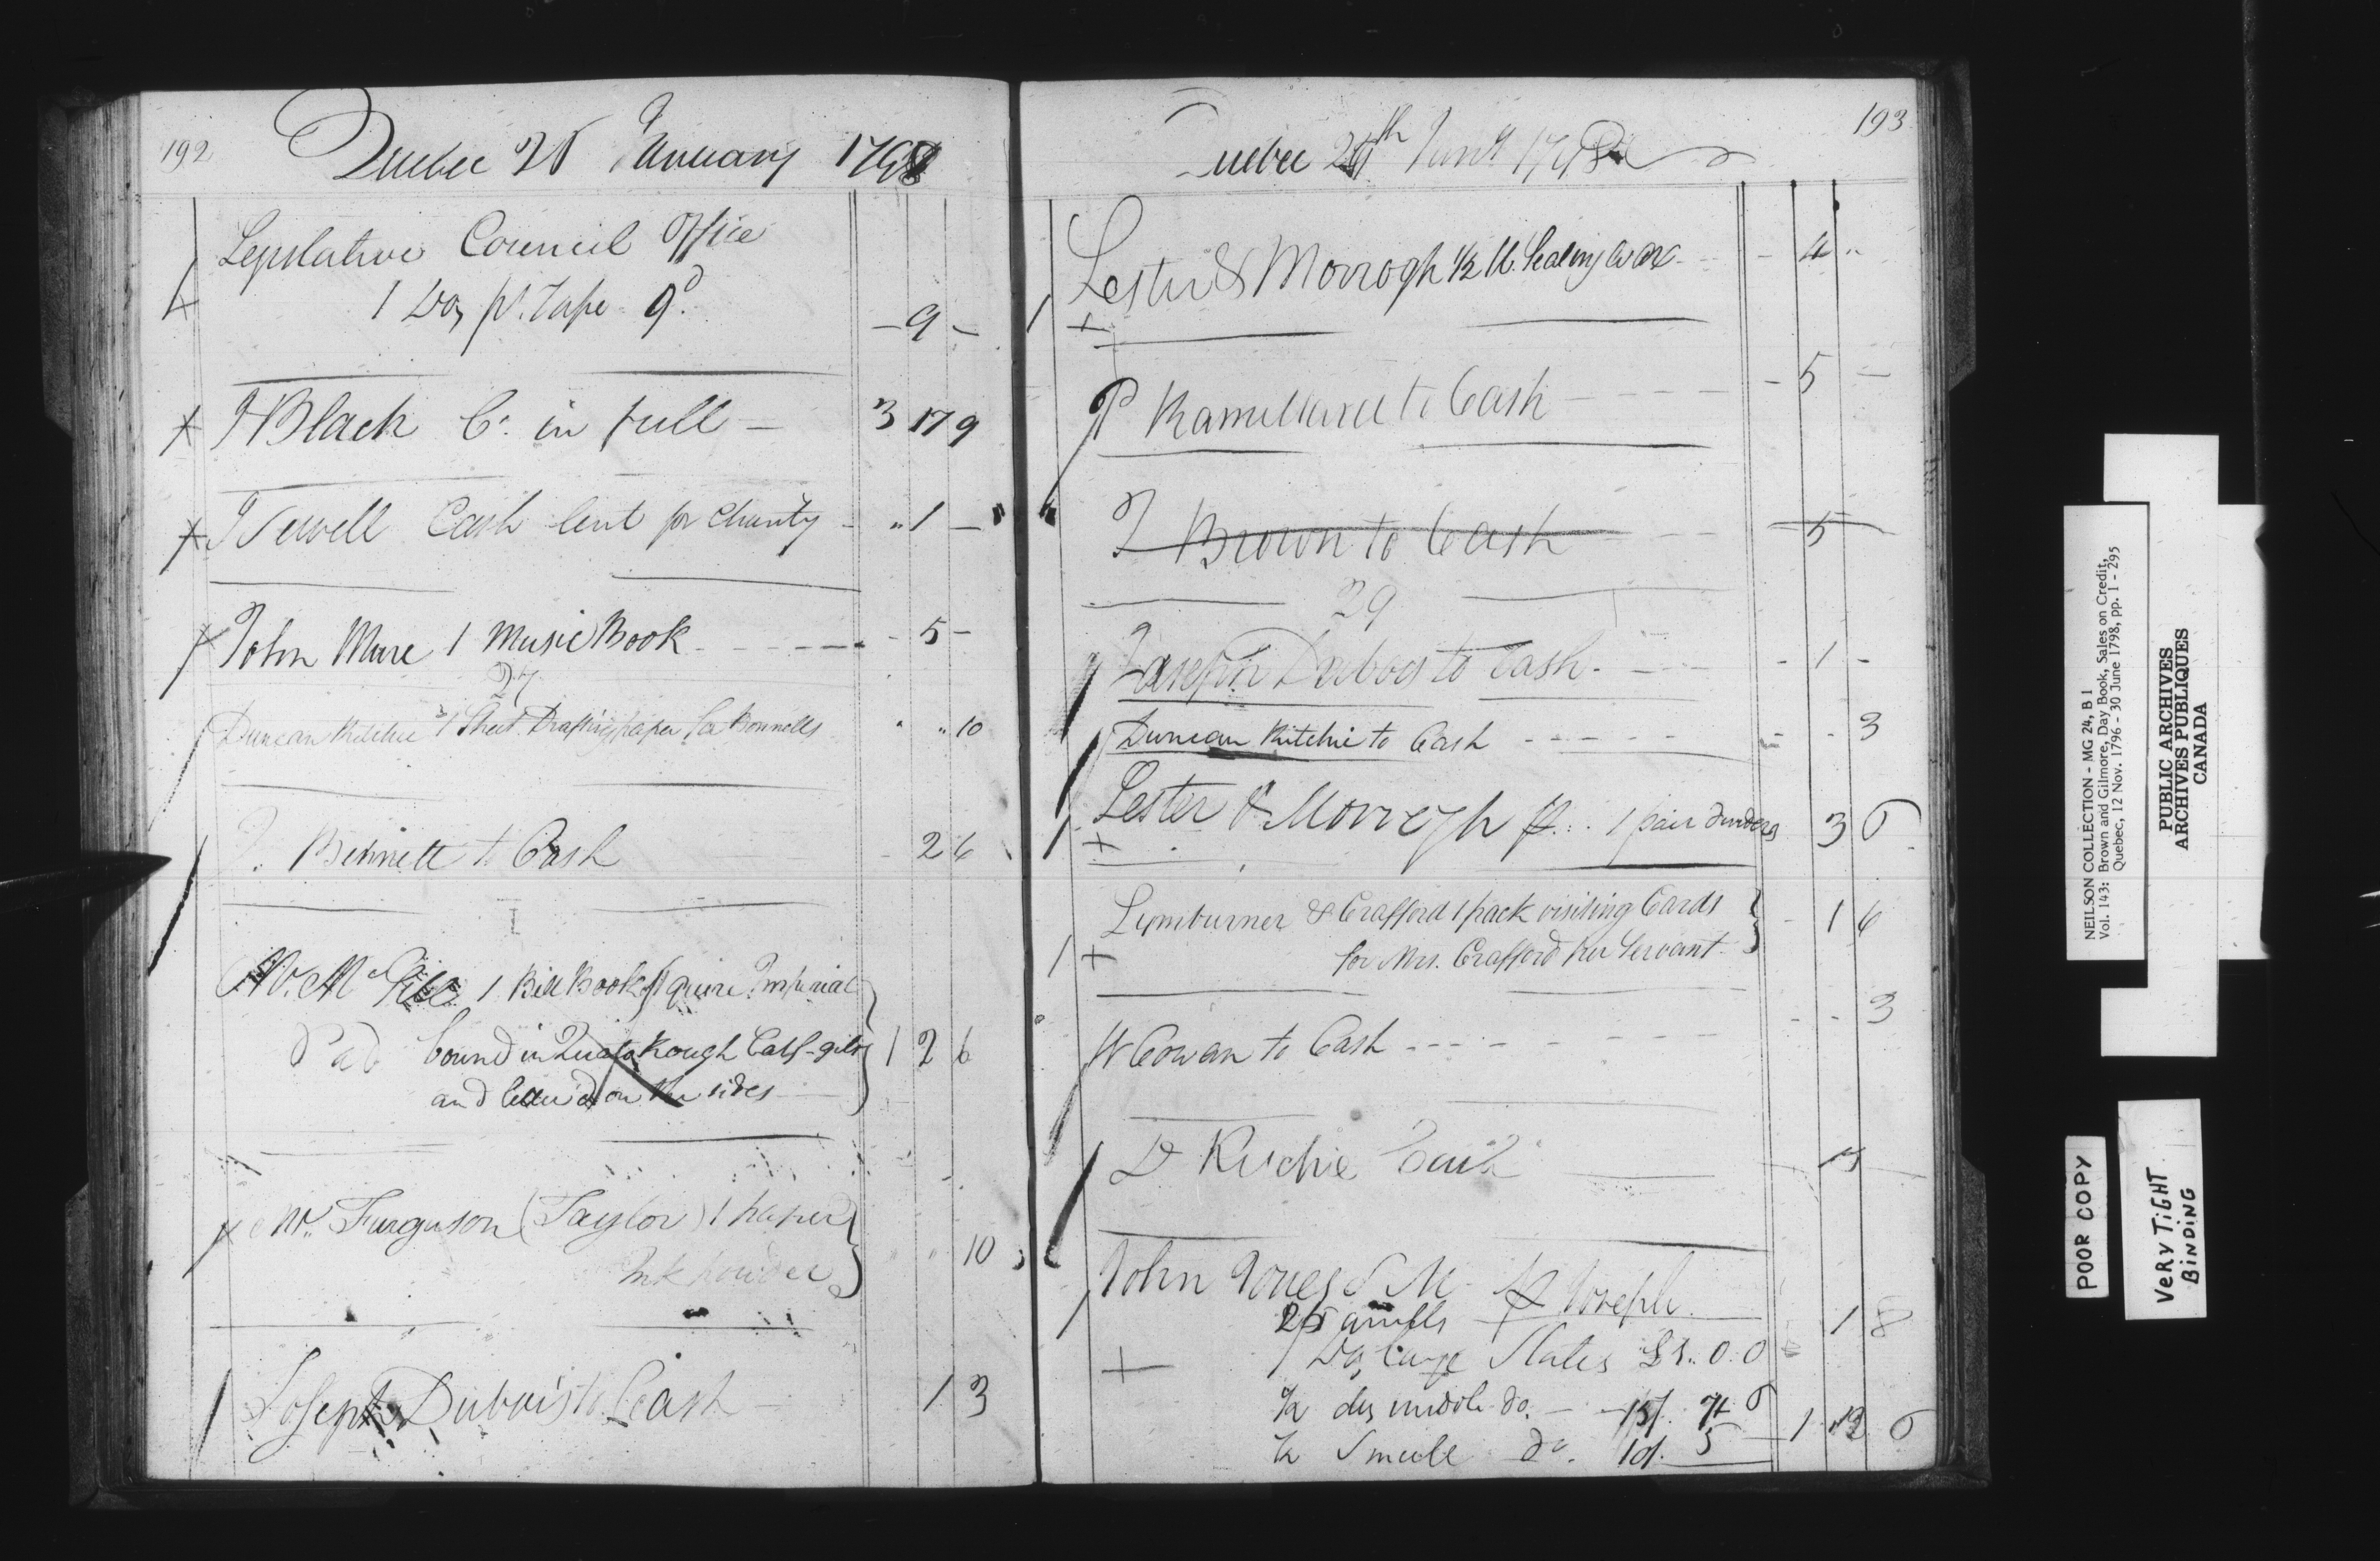 192
Quebec 26 January 1798
Legislative Council Office
1 Doz ps. Tape 9d.
- 9 -
J Black Cr. in full - 3 17 9
J Sewell Cash lent for Charity - „ 1 -
John Mure 1 Music Book - 5 -
27
Duncan Ritchie 1 Sheet Drafting paper for Bonnells „ 10
J. Bennett to Cash 2 6
W. McGill 1 Bill Book 1 quire Imperial
Pad bound in Rough Calf - gilt 1 2 6
and letter'd on the sides
Mr. Furguson (Taylor) 1 paper
Ink powder 10
Joseph Dubois to Cash 1 3
193
Quebec 26th Jany 1798
Lester & Morrogh 1/2 lb. Sealing Wax - 4 „
P to Cash - 5 -
J Brown to Cash 5
29
Joseph Dubois to Cash - 1 -
Duncan Ritchie to Cash - - 3
Lester & Morrogh 1 pair 3 6
Lymburner & Crafford 1 pack visiting Cards - 1 6
for Mrs. Crafford per Servant
W Cowan to Cash - - 3
D Ritchie Cash
John Jones per Joseph
1 8
1 Doz large Slates £1.. 0. 0
1/2 doz middle do. - 15/. 7 6
1/2 Small do. 10/. 5 1 12 6
NEILSON COLLECTION - MG 24, B 1
Vol. 143: Brown and Gilmore, Day Book, Sales on Credit,
Quebec, 12 Nov. 1796 - 30 June 1798, pp. 1 - 295
PUBLIC ARCHIVES
ARCHIVES PUBLIQUES
CANADA
POOR COPY
VERY TIGHT
BINDING